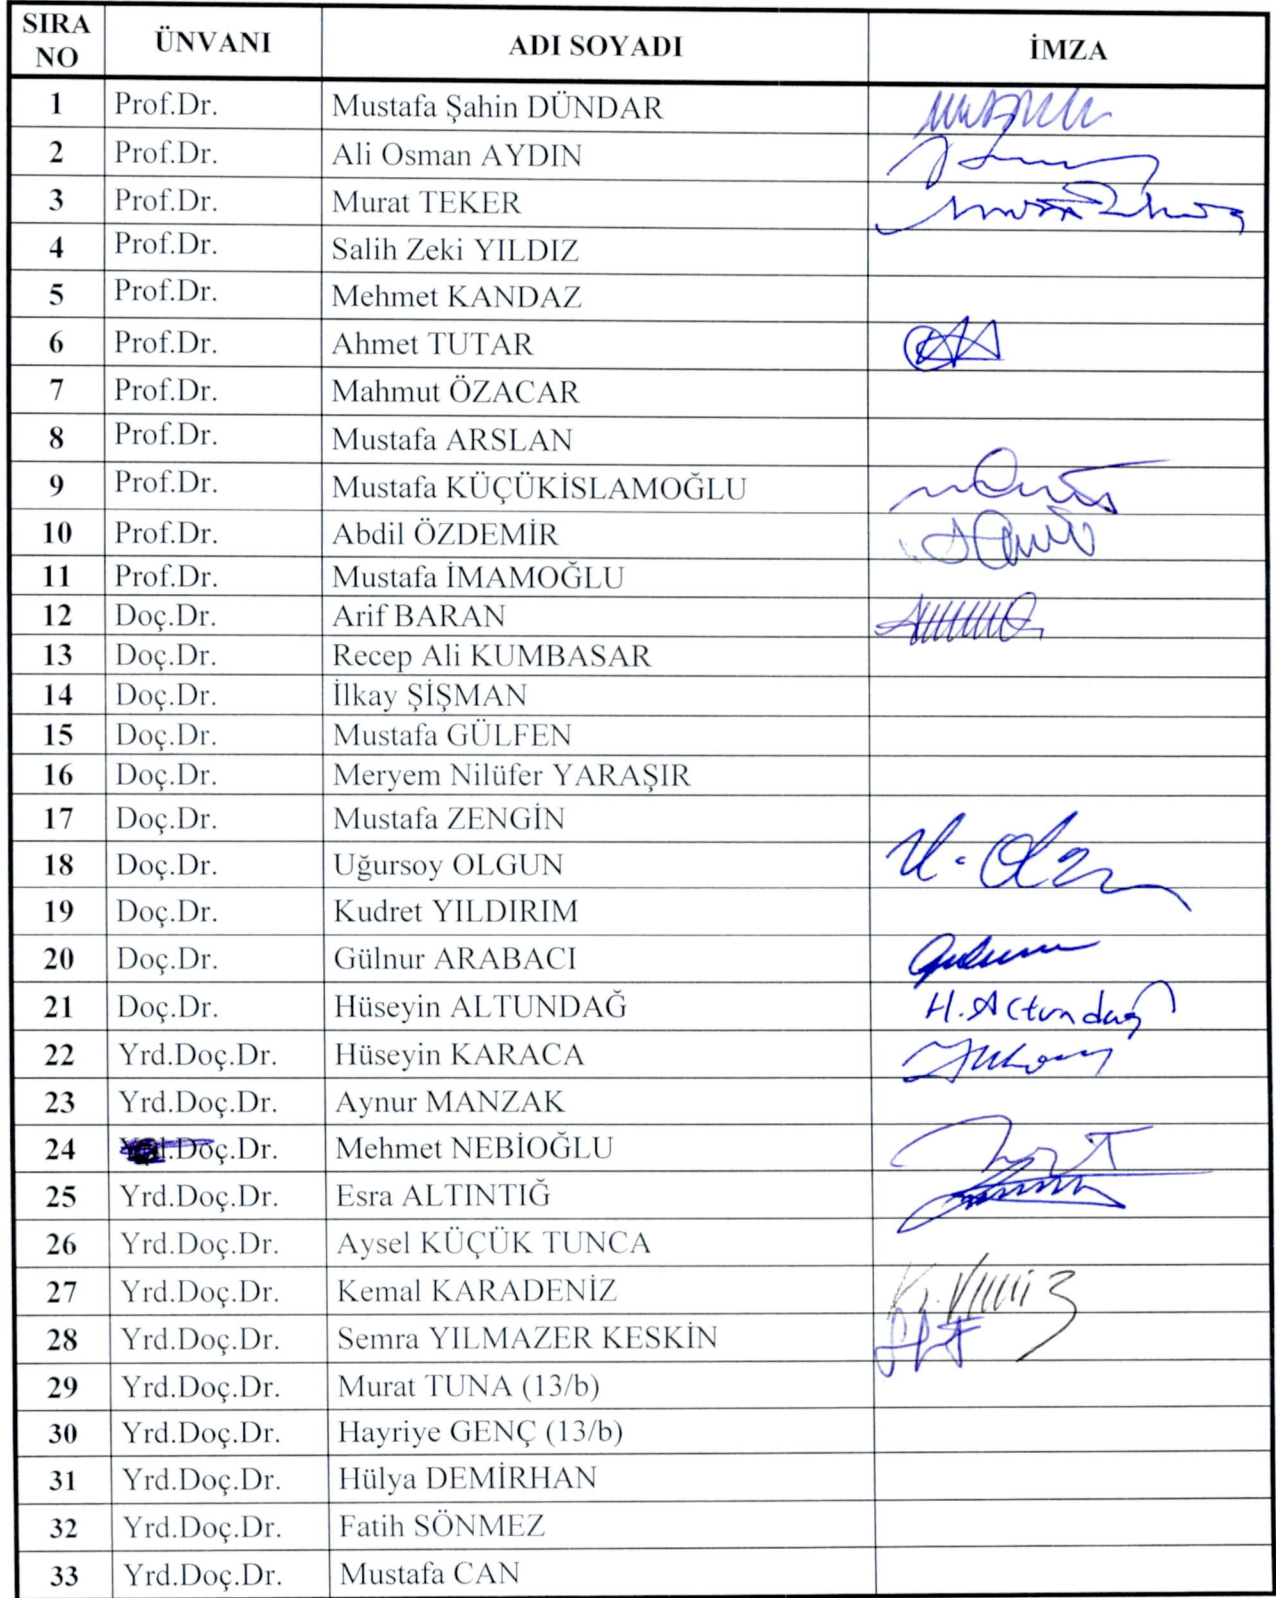 SIRA NO ÜNVANI ADI SOYADI İMZA
1 Prof.Dr. Mustafa Şahin DÜNDAR
2 Prof.Dr. Ali Osman AYDIN
3 Prof.Dr. Murat TEKER
4 Prof.Dr. Salih Zeki YILDIZ
5 Prof.Dr. Mehmet KANDAZ
6 Prof.Dr. Ahmet TUTAR
7 Prof.Dr. Mahmut ÖZACAR
8 Prof.Dr. Mustafa ARSLAN
9 Prof.Dr. Mustafa KÜÇÜKİSLAMOĞLU
10 Prof.Dr. Abdil ÖZDEMİR
11 Prof.Dr. Mustafa İMAMOĞLU
12 Doç.Dr. Arif BARAN
13 Doç.Dr. Recep Ali KUMBASAR
14 Doç.Dr. İlkay ŞİŞMAN
15 Doç.Dr. Mustafa GÜLFEN
16 Doç.Dr. Meryem Nilüfer YARAŞIR
17 Doç.Dr. Mustafa ZENGİN
18 Doç.Dr. Uğursoy OLGUN
19 Doç.Dr. Kudret YILDIRIM
20 Doç.Dr. Gülnur ARABACI
21 Doç.Dr. Hüseyin ALTUNDAĞ H. Altundağ
22 Yrd.Doç.Dr. Hüseyin KARACA
23 Yrd.Doç.Dr. Aynur MANZAK
24 Yrd.Doç.Dr. Mehmet NEBİOĞLU
25 Yrd.Doç.Dr. Esra ALTINTIĞ
26 Yrd.Doç.Dr. Aysel KÜÇÜK TUNCA
27 Yrd.Doç.Dr. Kemal KARADENİZ
28 Yrd.Doç.Dr. Semra YILMAZER KESKİN
29 Yrd.Doç.Dr. Murat TUNA (13/b)
30 Yrd.Doç.Dr. Hayriye GENÇ (13/b)
31 Yrd.Doç.Dr. Hülya DEMİRHAN
32 Yrd.Doç.Dr. Fatih SÖNMEZ
33 Yrd.Doç.Dr. Mustafa CAN